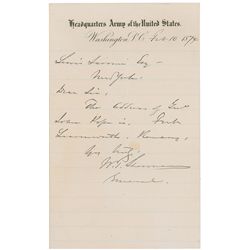 Headquarters Army of the United States.
Washington, D.C. Feb 10 1874
Esq—
New York.
Dear Sir,
The Address of Genl
John Pope is, Fort
Leavenworth, Kansas,
W. T. Sherman
General